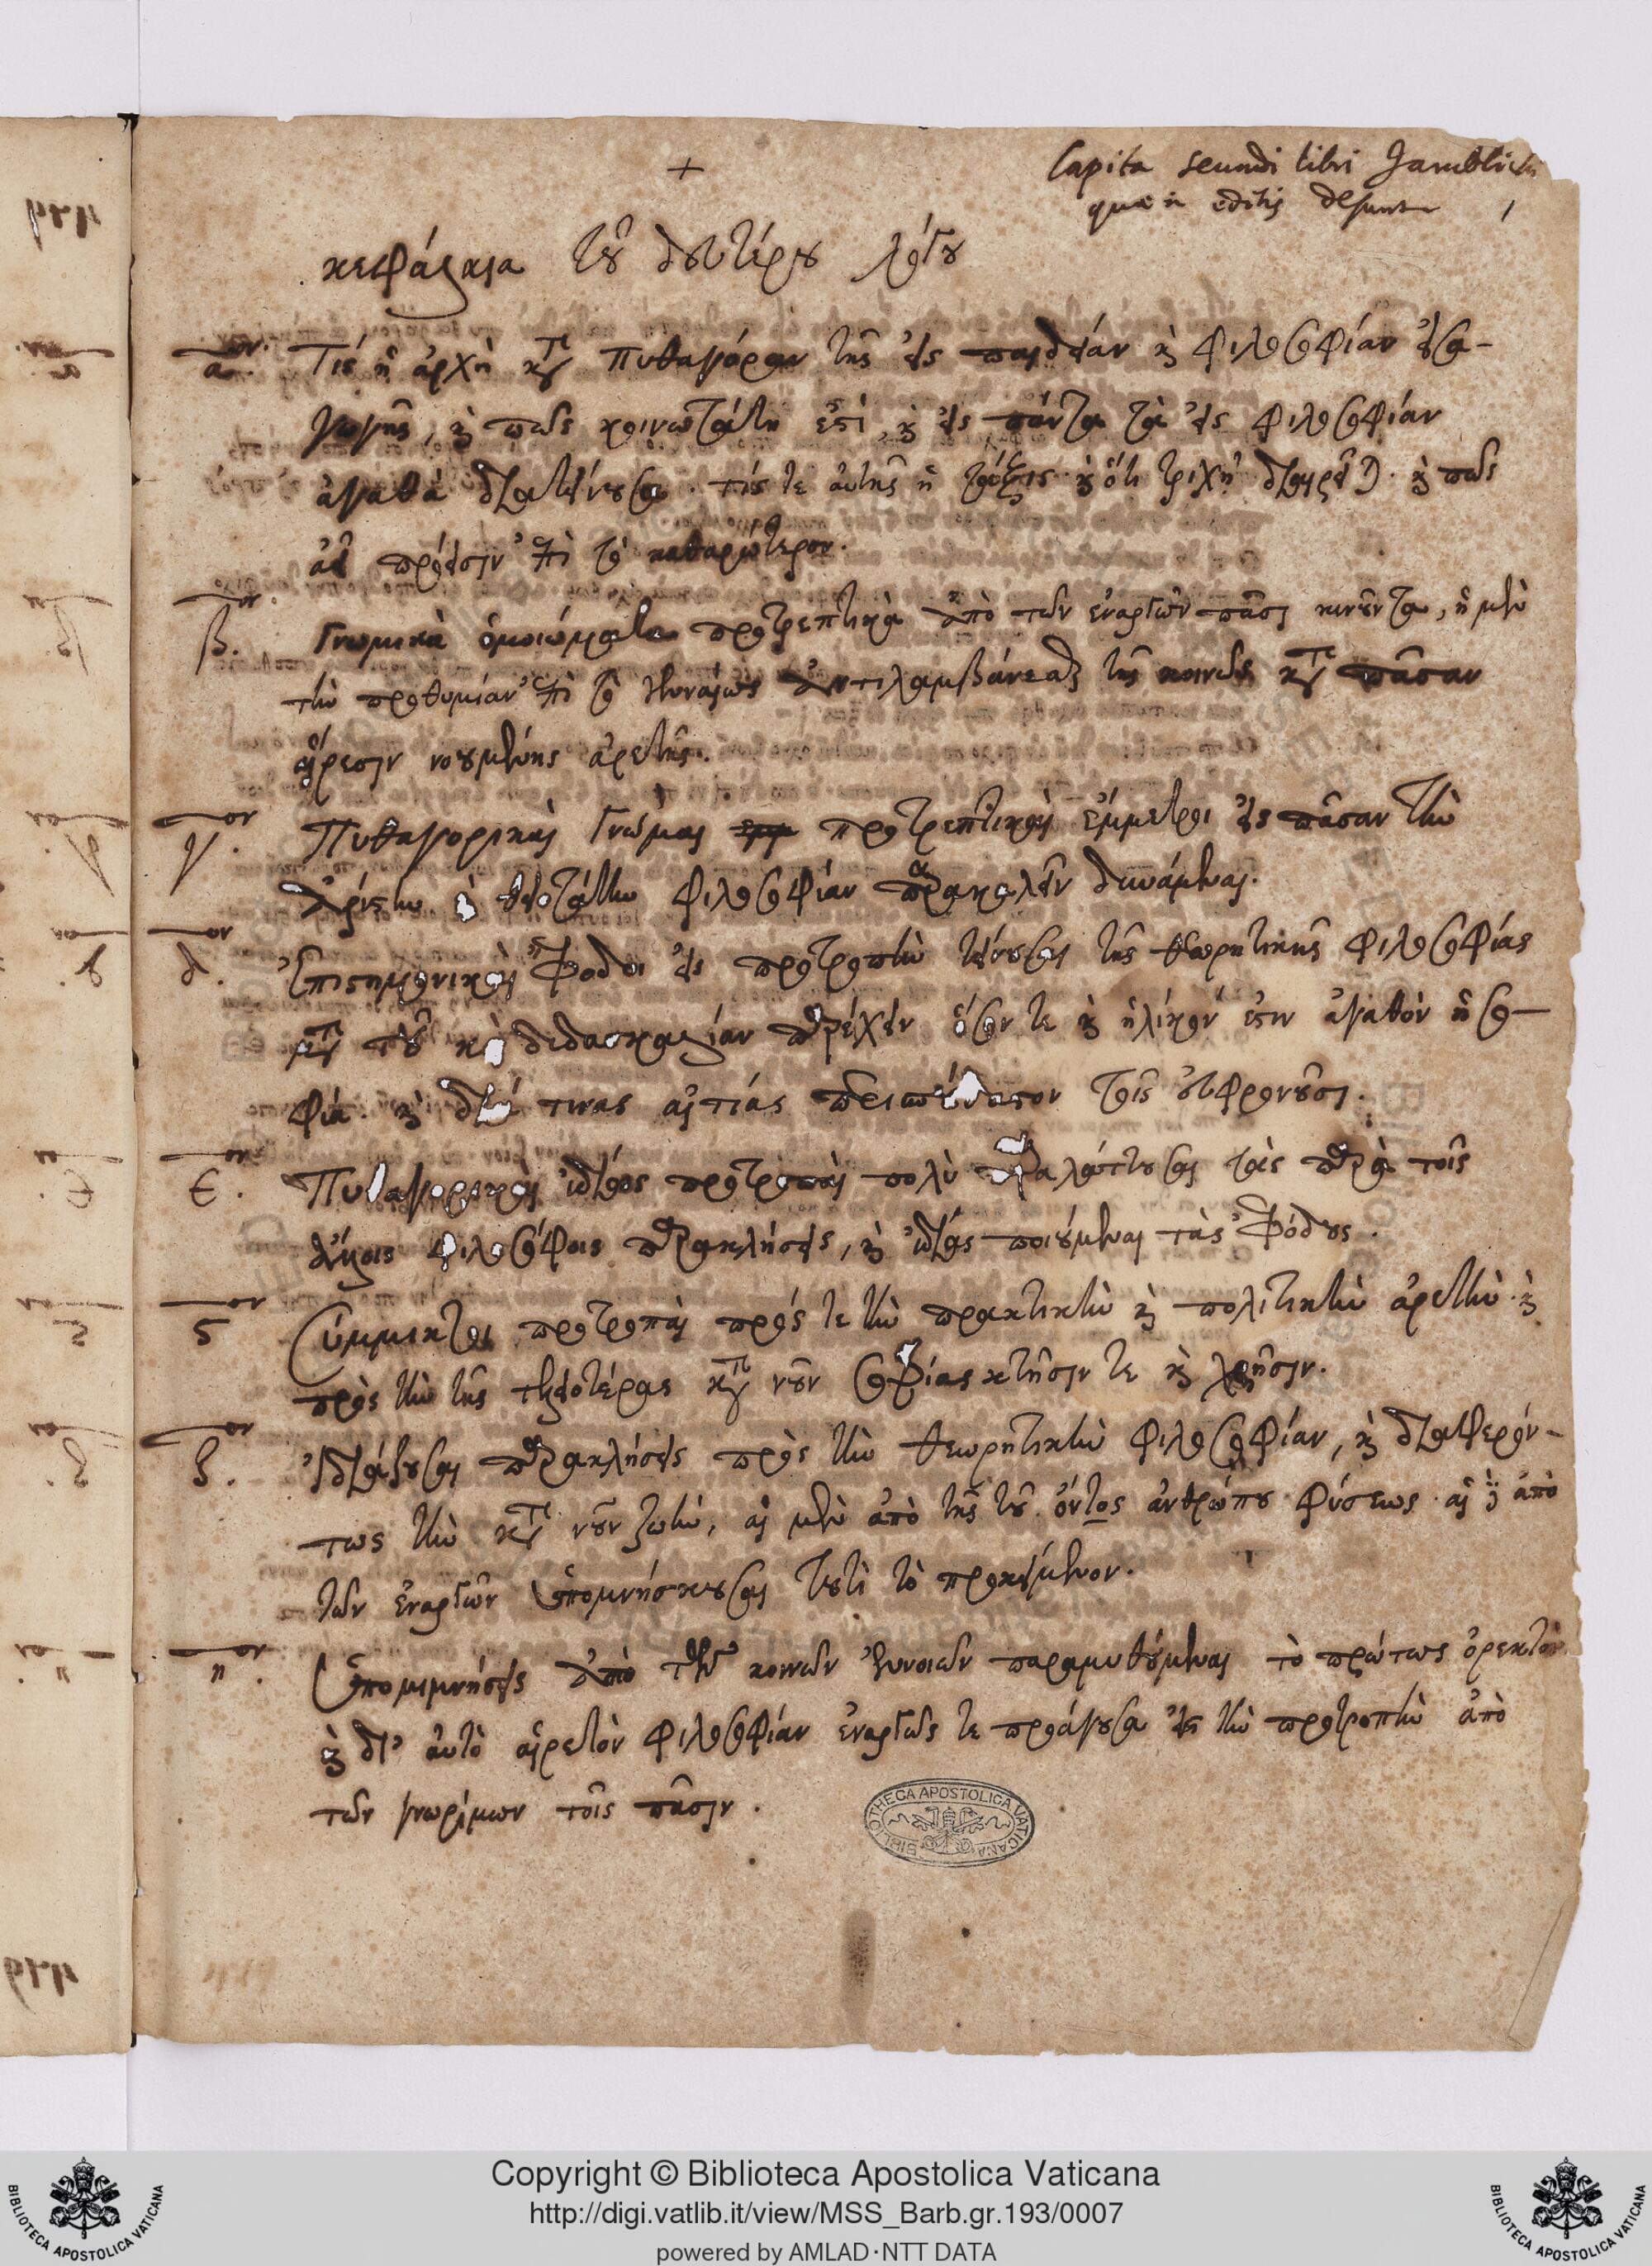 +
Capita secundi libri Jamblichi
quae in editis desunt
1
κεφάλαια τοῦ δευτέρου λόγου
α.ον Τίς ἡ ἀρχὴ κατὰ Πυθαγόραν τῆς εἰς παιδείαν καὶ φιλοσοφίαν εἰσα-
γωγῆς, καὶ πῶς κοινοτάτη ἐστὶ, καὶ εἰς πάντα τὰ εἰς φιλοσοφίαν
ἀγαθὰ διατείνουσα. τίς τε αὐτῆς ἡ τάξις καὶ ὅτι τριχῇ διαιρεῖται. καὶ πῶς
ἀεὶ πρόεισιν ἐπὶ τὸ καθαρώτερον.
β.ον Γνωμικὰ ὁμοιώματα προτρεπτικὰ ἀπὸ τῶν ἐναργῶν πᾶσι κινοῦντα,
τὴν προθυμίαν ἐπὶ τὸ γενναίως ἀντιλαμβάνεσθαι τῆς κοινῶς κατὰ πᾶσαν
αἵρεσιν νοουμένης ἀρετῆς.
γ.ον Πυθαγορικαὶ γνῶμαι προτρεπτικαὶ ἔμμετροι εἰς πᾶσαν τὴν
ἀρίστην καὶ θειοτάτην φιλοσοφίαν παρακαλεῖν δυνάμεναι.
δ.ον Ἐπιστημονικαὶ ἔφοδοι εἰς προτροπὴν τείνουσαι τῆς θεωρητικῆς φιλοσοφίας
μετὰ τοῦ καὶ διδασκαλίαν παρέχειν ὅσον τε καὶ ἡλίκον ἐστιν ἀγαθὸν ἡ σο-
φία. καὶ δι' ἅς τινας αἰτίας περισπούδαστον τοῖς εὖ φρονοῦσι.
ε.ον Πυθαγορικαὶ ἰδίως προτροπαὶ πολὺ παραλάττουσαι τὰς παρὰ τοῖς
ἄλλοις φιλοσόφοις παρακλήσεις, καὶ ἰδίας ποιούμεναι τὰς ἐφόδους.
ϛ ον Σύμμικτοι προτροπαὶ πρός τε τὴν πρακτικὴν καὶ πολιτικὴν ἀρετὴν. καὶ
πρὸς τὴν τῆς τελειοτέρας κατὰ νοῦν σοφίας κτῆσίν τε καὶ χρῆσιν.
ζ.ον Ἰδιάζουσαι παρακλήσεις πρὸς τὴν θεωρητικὴν φιλοσοφίαν, καὶ διαφερόν-
τως τὴν κατὰ νοῦν ζωήν, αἱ μὲν ἀπὸ τῆς τοῦ ὄντος ἀνθρώπου φύσεως. αἱ δὲ ἀπὸ
τῶν ἐναργῶν ὑπομνήσκουσαι τουτὶ τὸ προκείμενον.
η.ον Ὑπομιμνήσεις ἀπὸ τῶν κοινῶν ἐννοιῶν παραμυθούμεναι τὸ πρώτως ὀρεκτὸν
καὶ δι' αὐτὸ αἱρετὸν φιλοσοφίαν ἐναργῶς τε προάγουσαι εἰς τὴν προτροπὴν ἀπὸ
τῶν γνωρίμων τοῖς πᾶσιν.
BIBLIOTHECA APOSTOLICA VATICANA
Copyright © Biblioteca Apostolica Vaticana
http://digi.vatlib.it/view/MSS_Barb.gr.193/0007
powered by AMLAD·NTT DATA
BIBLIOTECA APOSTOLICA VATICANA
BIBLIOTECA APOSTOLICA VATICANA